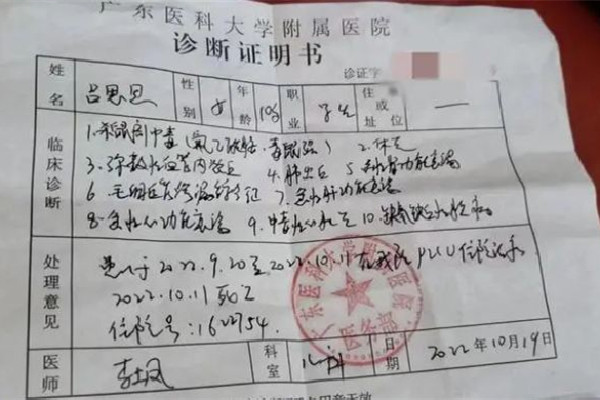 广东医科大学附属医院
诊断证明书
诊证字
姓名 吕思思 性别 女 年龄 10岁 职业 学生 住址或单位 —
临床诊断 1. 杀鼠剂中毒(氟乙酰胺、毒鼠强) 2. 休克
3. 弥散性血管内凝血 4. 肺出血 5. 急性肾功能衰竭
6. 毛细血管渗漏综合征 7. 急性肝功能衰竭
8. 急性心功能衰竭 9. 中毒性心肌炎 10. 缺氧缺血性脑病
处理意见 患儿于2022.9.20至2022.10.11在我院PICU住院治疗
2022.10.11死亡
住院号:1622754.
广东医科大学附属医院 医务部
医师 科室 儿科 日期 2022年10月19日